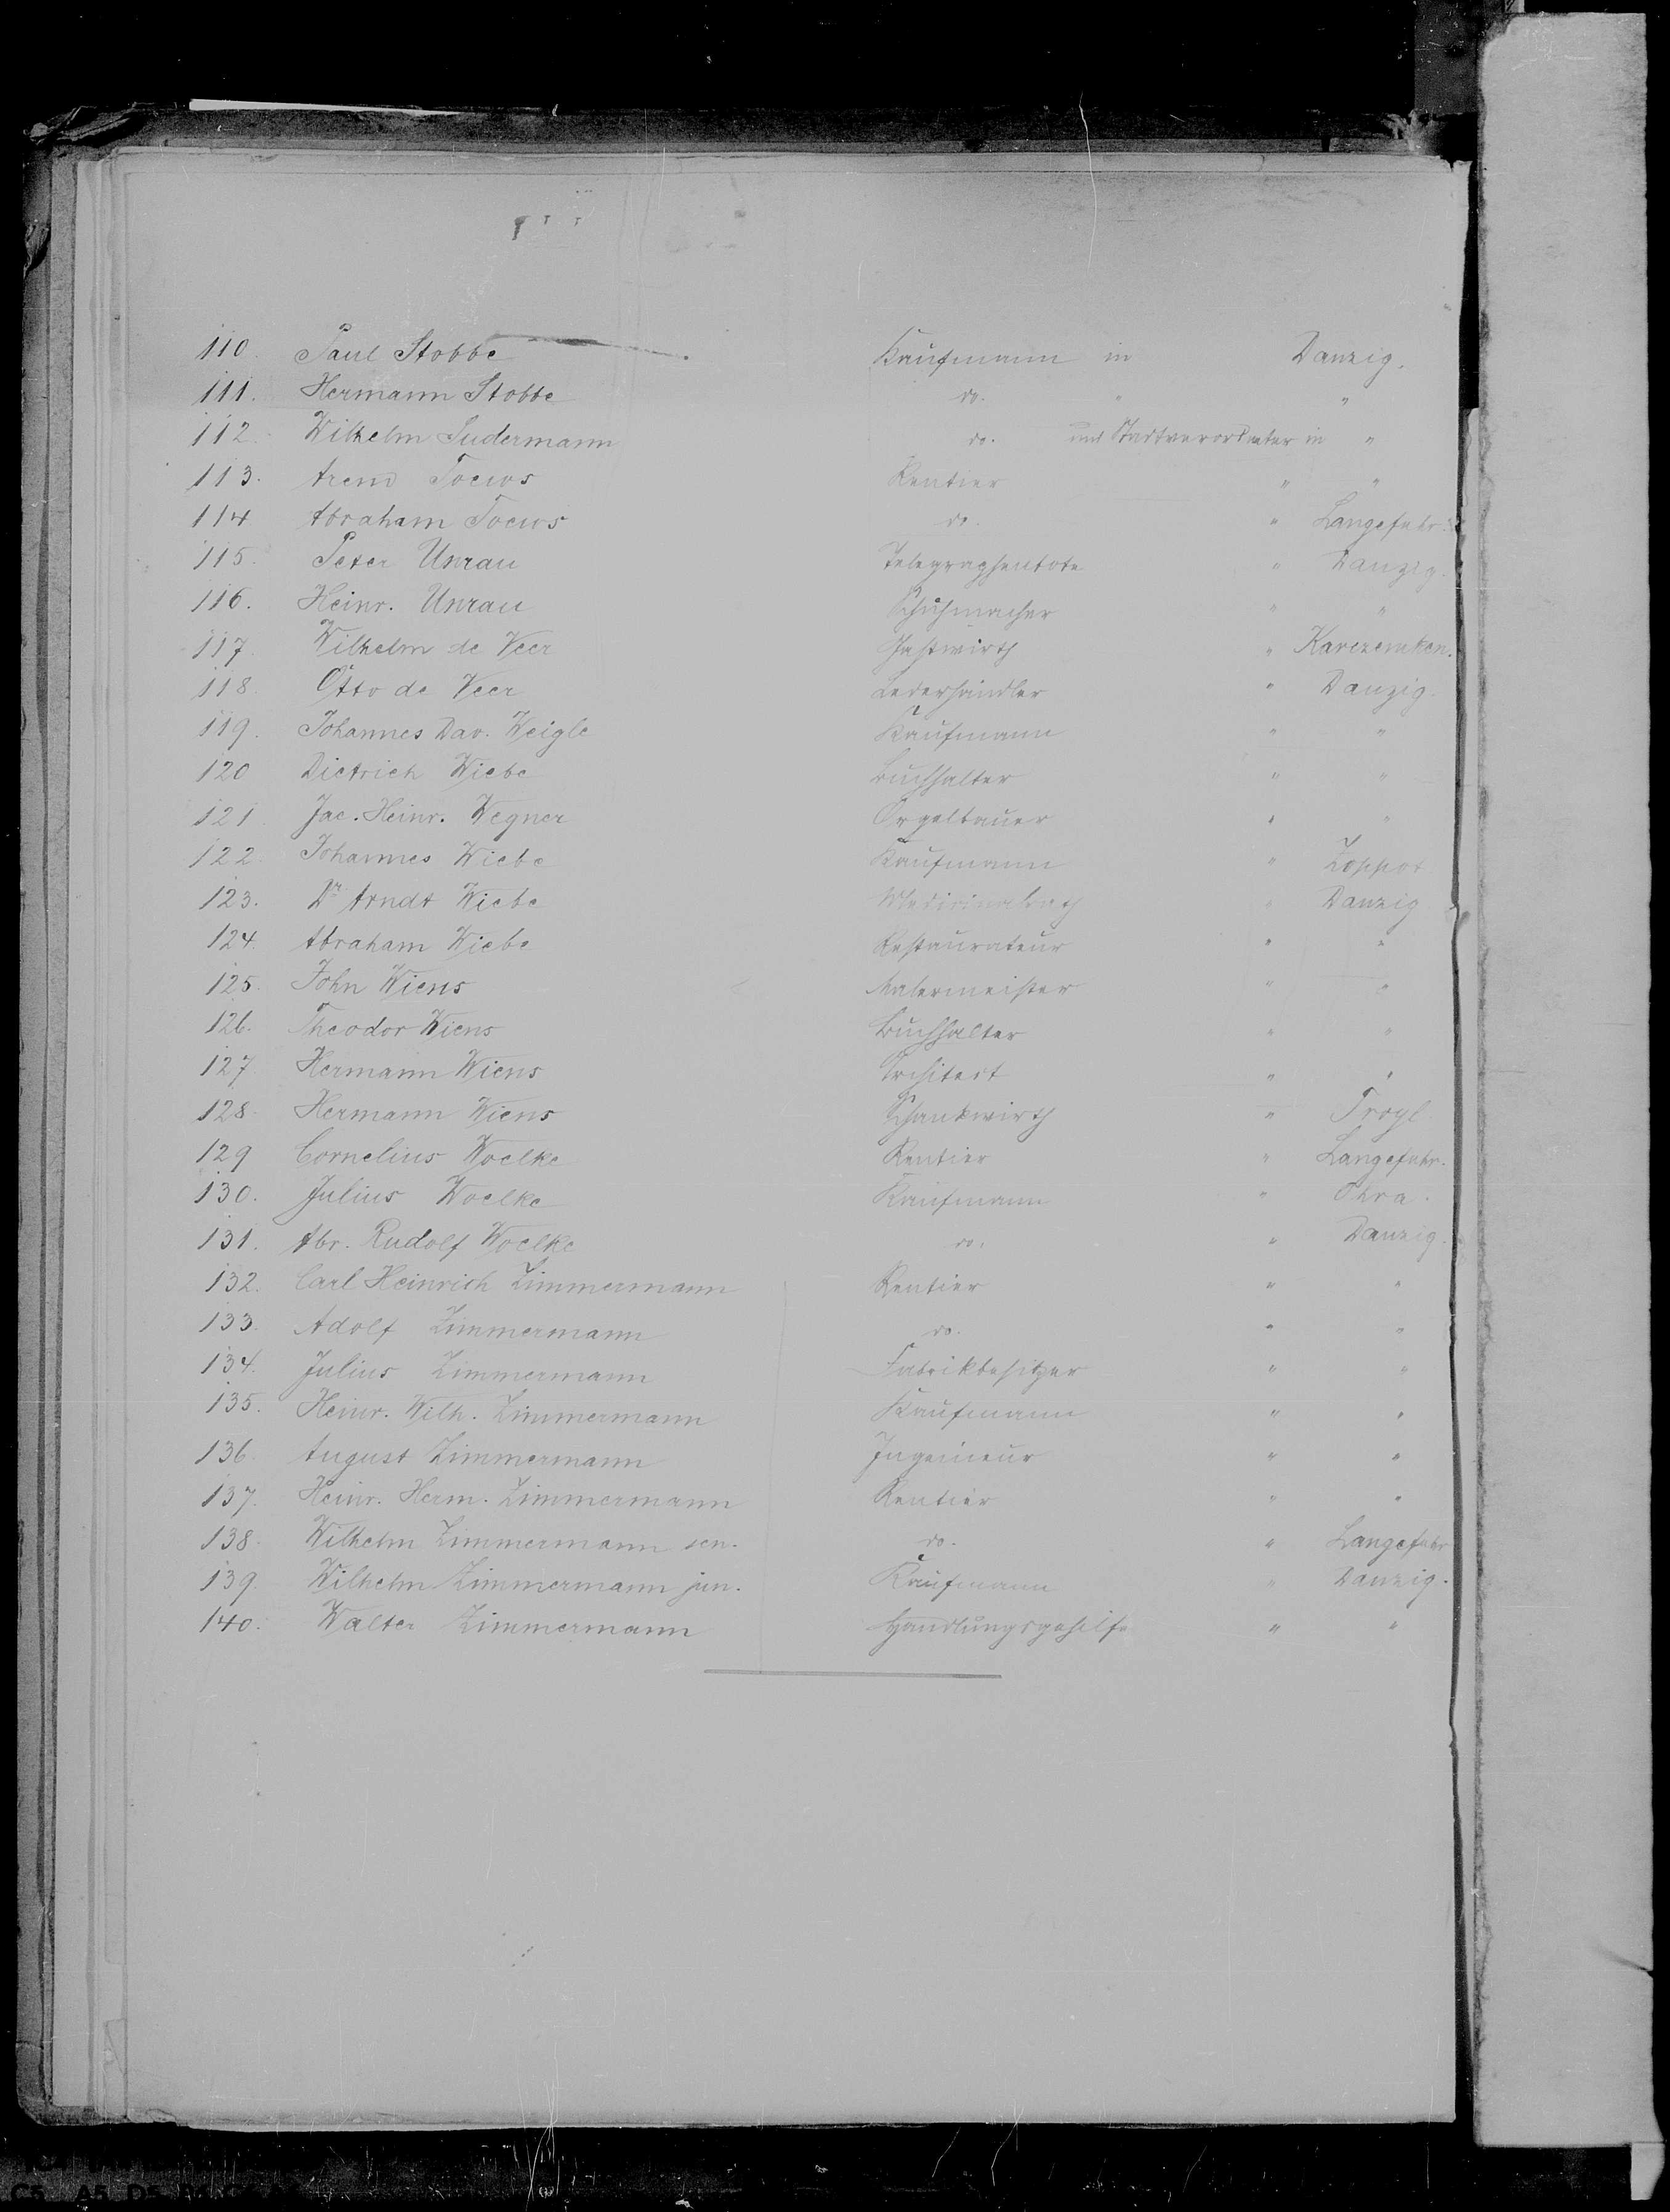 110. Paul Stobbe Kaufmann in Danzig.
111. Hermann Stobbe do. " "
112. Wilhelm Sudermann do. und Stadtverordneter in "
113. Arend Toews Rentier " "
114 Abraham Toews do. " Langefuhr.
115. Peter Unrau Telegraphenbote " Danzig.
116. Heinr. Unrau Schuhmacher " "
117. Wilhelm de Veer Gastwirth " Karczemken.
118. Otto de Veer Lederhändler " Danzig.
119. Johannes Dav. Weigle Kaufmann " "
120 Dietrich Wiebe Buchhalter " "
121 Jac. Heinr. Wegner Orgelbauer " "
122. Johannes Wiebe Kaufmann " Zoppot
123. Dr Arndt Wiebe Medicinalrath " Danzig
124. Abraham Wiebe Restaurateur " "
125. John Wiens Malermeister " "
126. Theodor Wiens Buchhalter " "
127. Hermann Wiens Architect " "
128. Hermann Wiens Schankwirth " Troyl
129 Cornelius Woelke Rentier " Langefuhr.
130. Julius Woelke Kaufmann " Ohra.
131. Abr. Rudolf Woelke do. " Danzig.
132. Carl Heinrich Zimmermann Rentier " "
133. Adolf Zimmermann do. " "
134. Julius Zimmermann Fabrikbesitzer " "
135. Heinr. Wilh. Zimmermann Kaufmann " "
136. August Zimmermann Ingenieur " "
137. Heinr. Herm. Zimmermann Rentier " "
138. Wilhelm Zimmermann sen. do. " Langefuhr
139. Wilhelm Zimmermann jun. Kaufmann " Danzig.
140. Walter Zimmermann Handlungsgehilfe " "